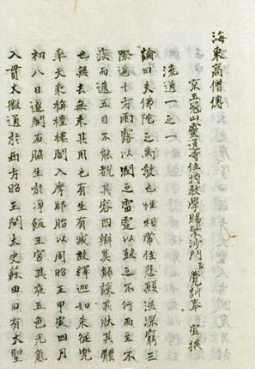 海東高僧傳
京五冠山靈通寺住持教學賜紫沙門臣覺訓奉 宣撰
流通一之一
論曰夫佛陀之爲教也性相常住悲願洪深窮三
際遍十方雨露以潤之雷霆以鼓之不行而至不
疾而速五目不能覩其容四辯莫能談其狀其體
也無去無來其用也有生有滅故釋迦如來從兜
率天乘栴檀樓閣入摩耶胎以周昭王甲寅四月
初八日遂開右脇生於淨飯王宮其夜五色光氣
入貫太微通於西方昭王問太史蘇由曰有大聖